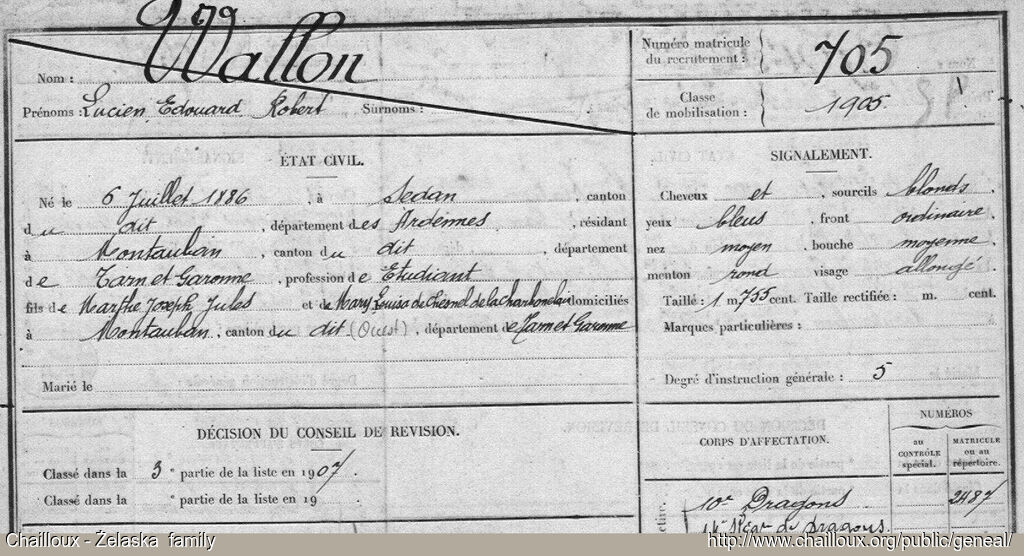 179
Nom : Wallon
Prénoms : Lucien Edouard Robert Surnoms :
Numéro matricule
du recrutement : 705
Classe
de mobilisation : 1905
ÉTAT CIVIL.
Né le 6 Juillet 1886, à Sedan, canton
du dit, département des Ardennes, résidant
à Montauban, canton du dit, département
de Tarn et Garonne, profession de Etudiant
fils de Marthe Joseph Jules et de Mary Louisa de Chesnel de la Charbonelais domiciliés
à Montauban, canton du dit (Ouest), département de Tarn et Garonne
Marié le
SIGNALEMENT.
Cheveux et sourcils blonds
yeux bleus, front ordinaire
nez moyen, bouche moyenne
menton rond visage allongé
Taille : 1 m. 755 cent. Taille rectifiée : m. cent.
Marques particulières :
Degré d'instruction générale : 5
DÉCISION DU CONSEIL DE REVISION.
Classé dans la 3e partie de la liste en 1907.
Classé dans la e partie de la liste en 19
CORPS D'AFFECTATION.
NUMÉROS
au
CONTRÔLE
spécial.
MATRICULE
ou au
répertoire.
10e Dragons 2487
de Dragons
Chailloux - Żelaska family
http://www.chailloux.org/public/geneal/